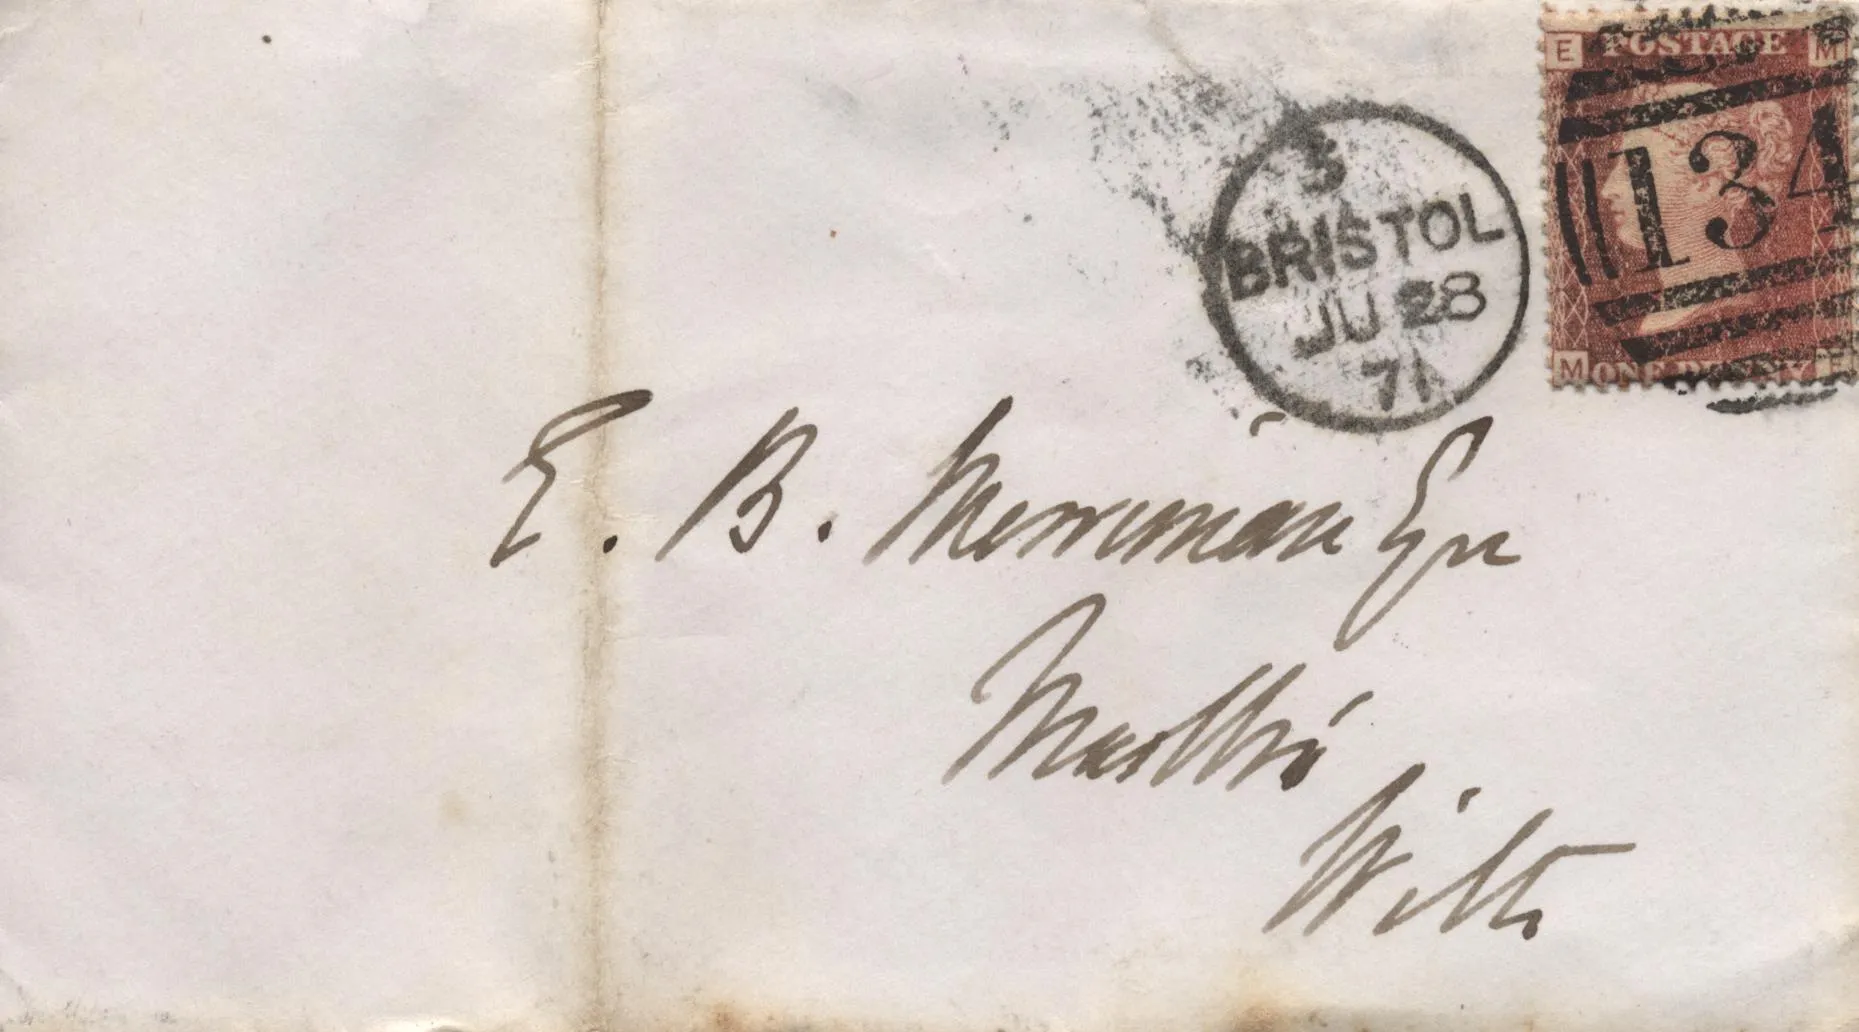 E POSTAGE M
134
M ONE PENNY E
3
BRISTOL
JU 28
71
E. B. Merriman Esqre
Marlbro'
Wilts